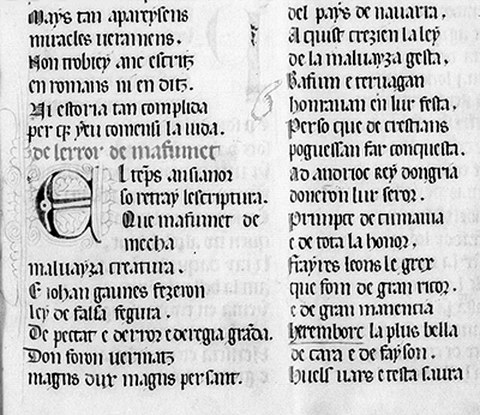 Mays tan apareysens
miracles veramens.
Non trobiey anc escritz
en romans ni en ditz.
Ni estoria tan complida
per q yeu comensi la vida.
de lerror de mafumet
El teps ansianor
so retray lescriptura.
Que mafumet de
mecha
malvayza creatura.
E iohan gaunes fezeron
ley de falsa figura.
De peccat e derror e de regia
Don foron vermatz
magns dux magns persant.
del pays de navaria,
Aquist crezien la ley
de la malvayza gesta,
Bafum e tervagan
honravan en lur festa,
Perso que crestians
poguessan far conquesta.
Ad andrioc rey dongria
doneron lur seror.
Primpce de cumania
e de tota la honor,
frayres leons le grex
que foru de gran ricor,
e de gran manentia
herembore la plus bella
de cara e de fayson.
Huels vars e testa saura